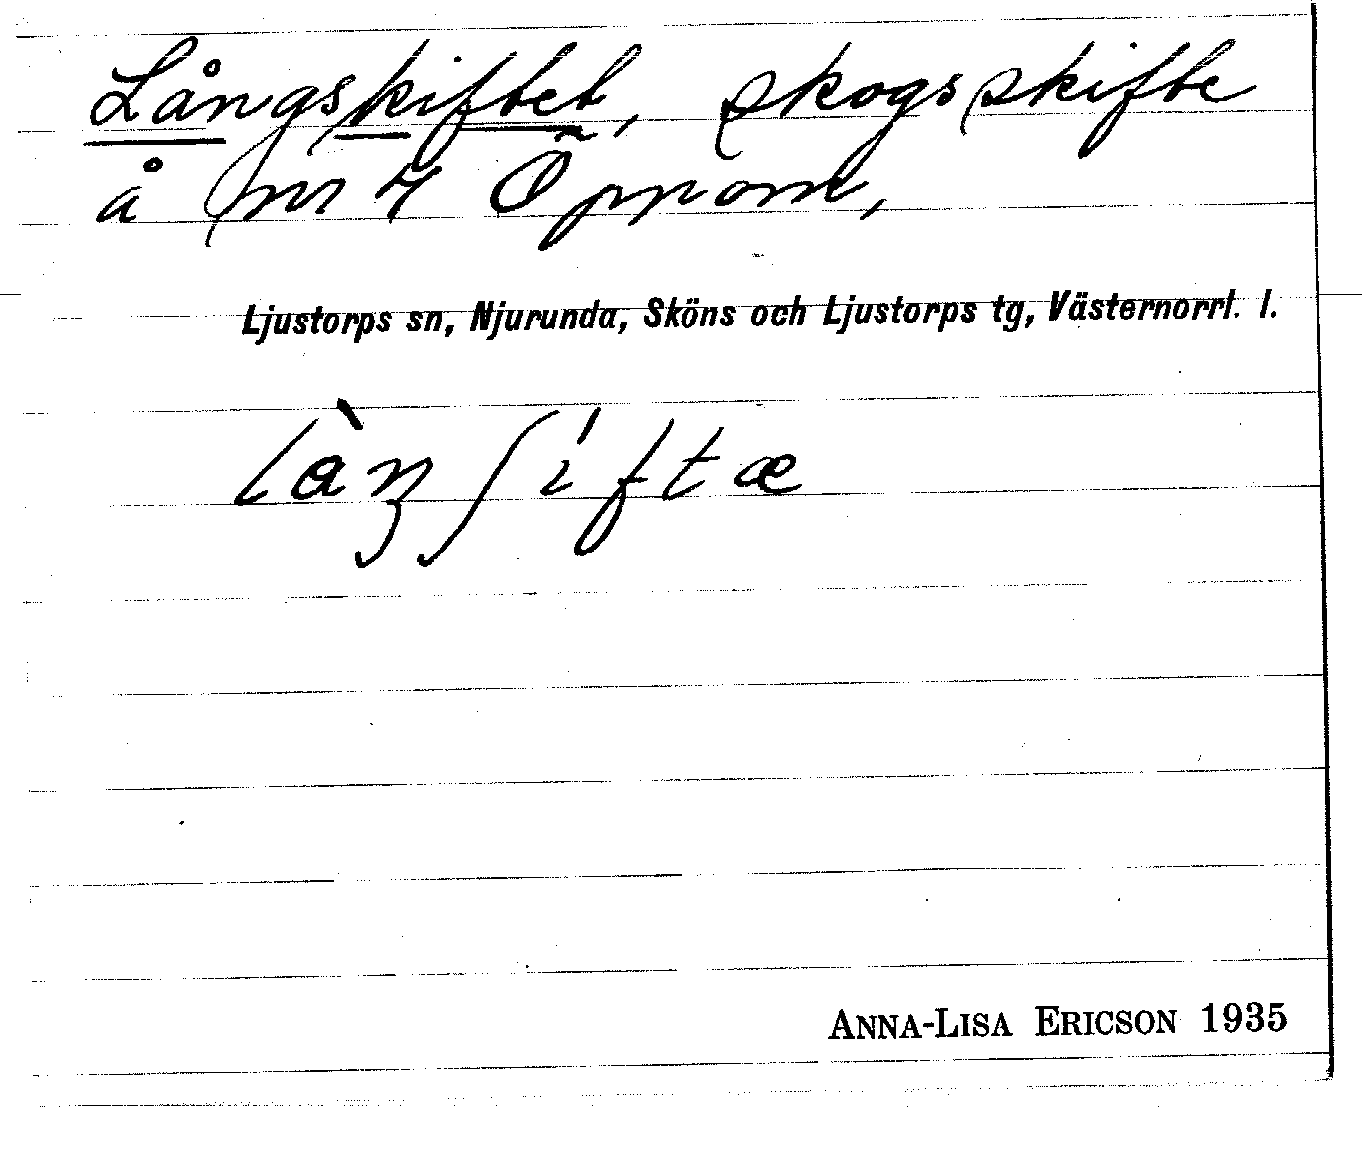 Långskiftet, skogsskifte
å nr 4 Öppom,
Ljustorps sn, Njurunda, Sköns och Ljustorps tg, Västernorrl. l.
ANNA-LISA ERICSON 1935